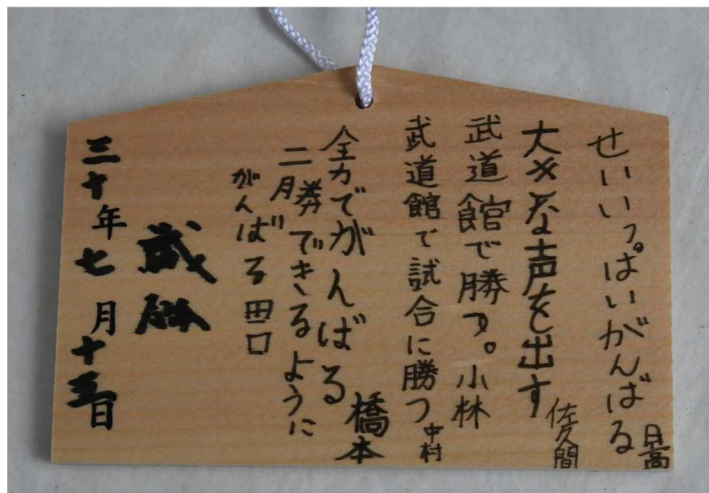 せいいっぱいがんばる 日高
大きな声を出す 佐久間
武道館で勝つ。小林
武道館で試合に勝つ 中村
全力でがんばる 橋本
二勝できるように
がんばる 田口
三十年七月十五日